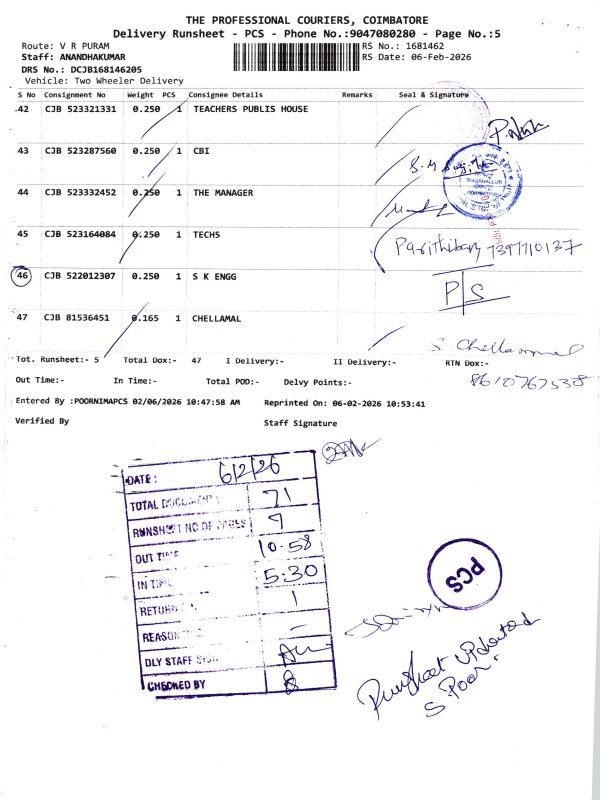 THE PROFESSIONAL COURIERS, COIMBATORE
Delivery Runsheet - PCS - Phone No.:9047080280 - Page No.:5
Route: V R PURAM RS No.: 1681462
Staff: ANANDHAKUMAR RS Date: 06-Feb-2026
DRS No.: DCJB168146205
Vehicle: Two Wheeler Delivery
S No Consignment No Weight PCS Consignee Details Remarks Seal & Signature
42 CJB 523321331 0.250 1 TEACHERS PUBLIS HOUSE
43 CJB 523287560 0.250 1 CBI
44 CJB 523332452 0.250 1 THE MANAGER
45 CJB 523164084 0.250 1 TECH5 Parithiban 7397710137
46 CJB 522012307 0.250 1 S K ENGG P/S
47 CJB 81536451 0.165 1 CHELLAMAL S Chellammal
Tot. Runsheet:- 5 Total Dox:- 47 I Delivery:- II Delivery:- RTN Dox:-
8610767538
Out Time:- In Time:- Total POD:- Delvy Points:-
Entered By :POORNIMAPCS 02/06/2026 10:47:58 AM Reprinted On: 06-02-2026 10:53:41
Verified By Staff Signature
DATE: 6/2/26
TOTAL DOCUMENT 71
RUNSHEET NO OF PAGES 7
OUT TIME 10.58
IN TIME 5:30
RETURN 1
REASON -
DLY STAFF SIGN
CHECKED BY
PCS
Runsheet updated
S Poor.